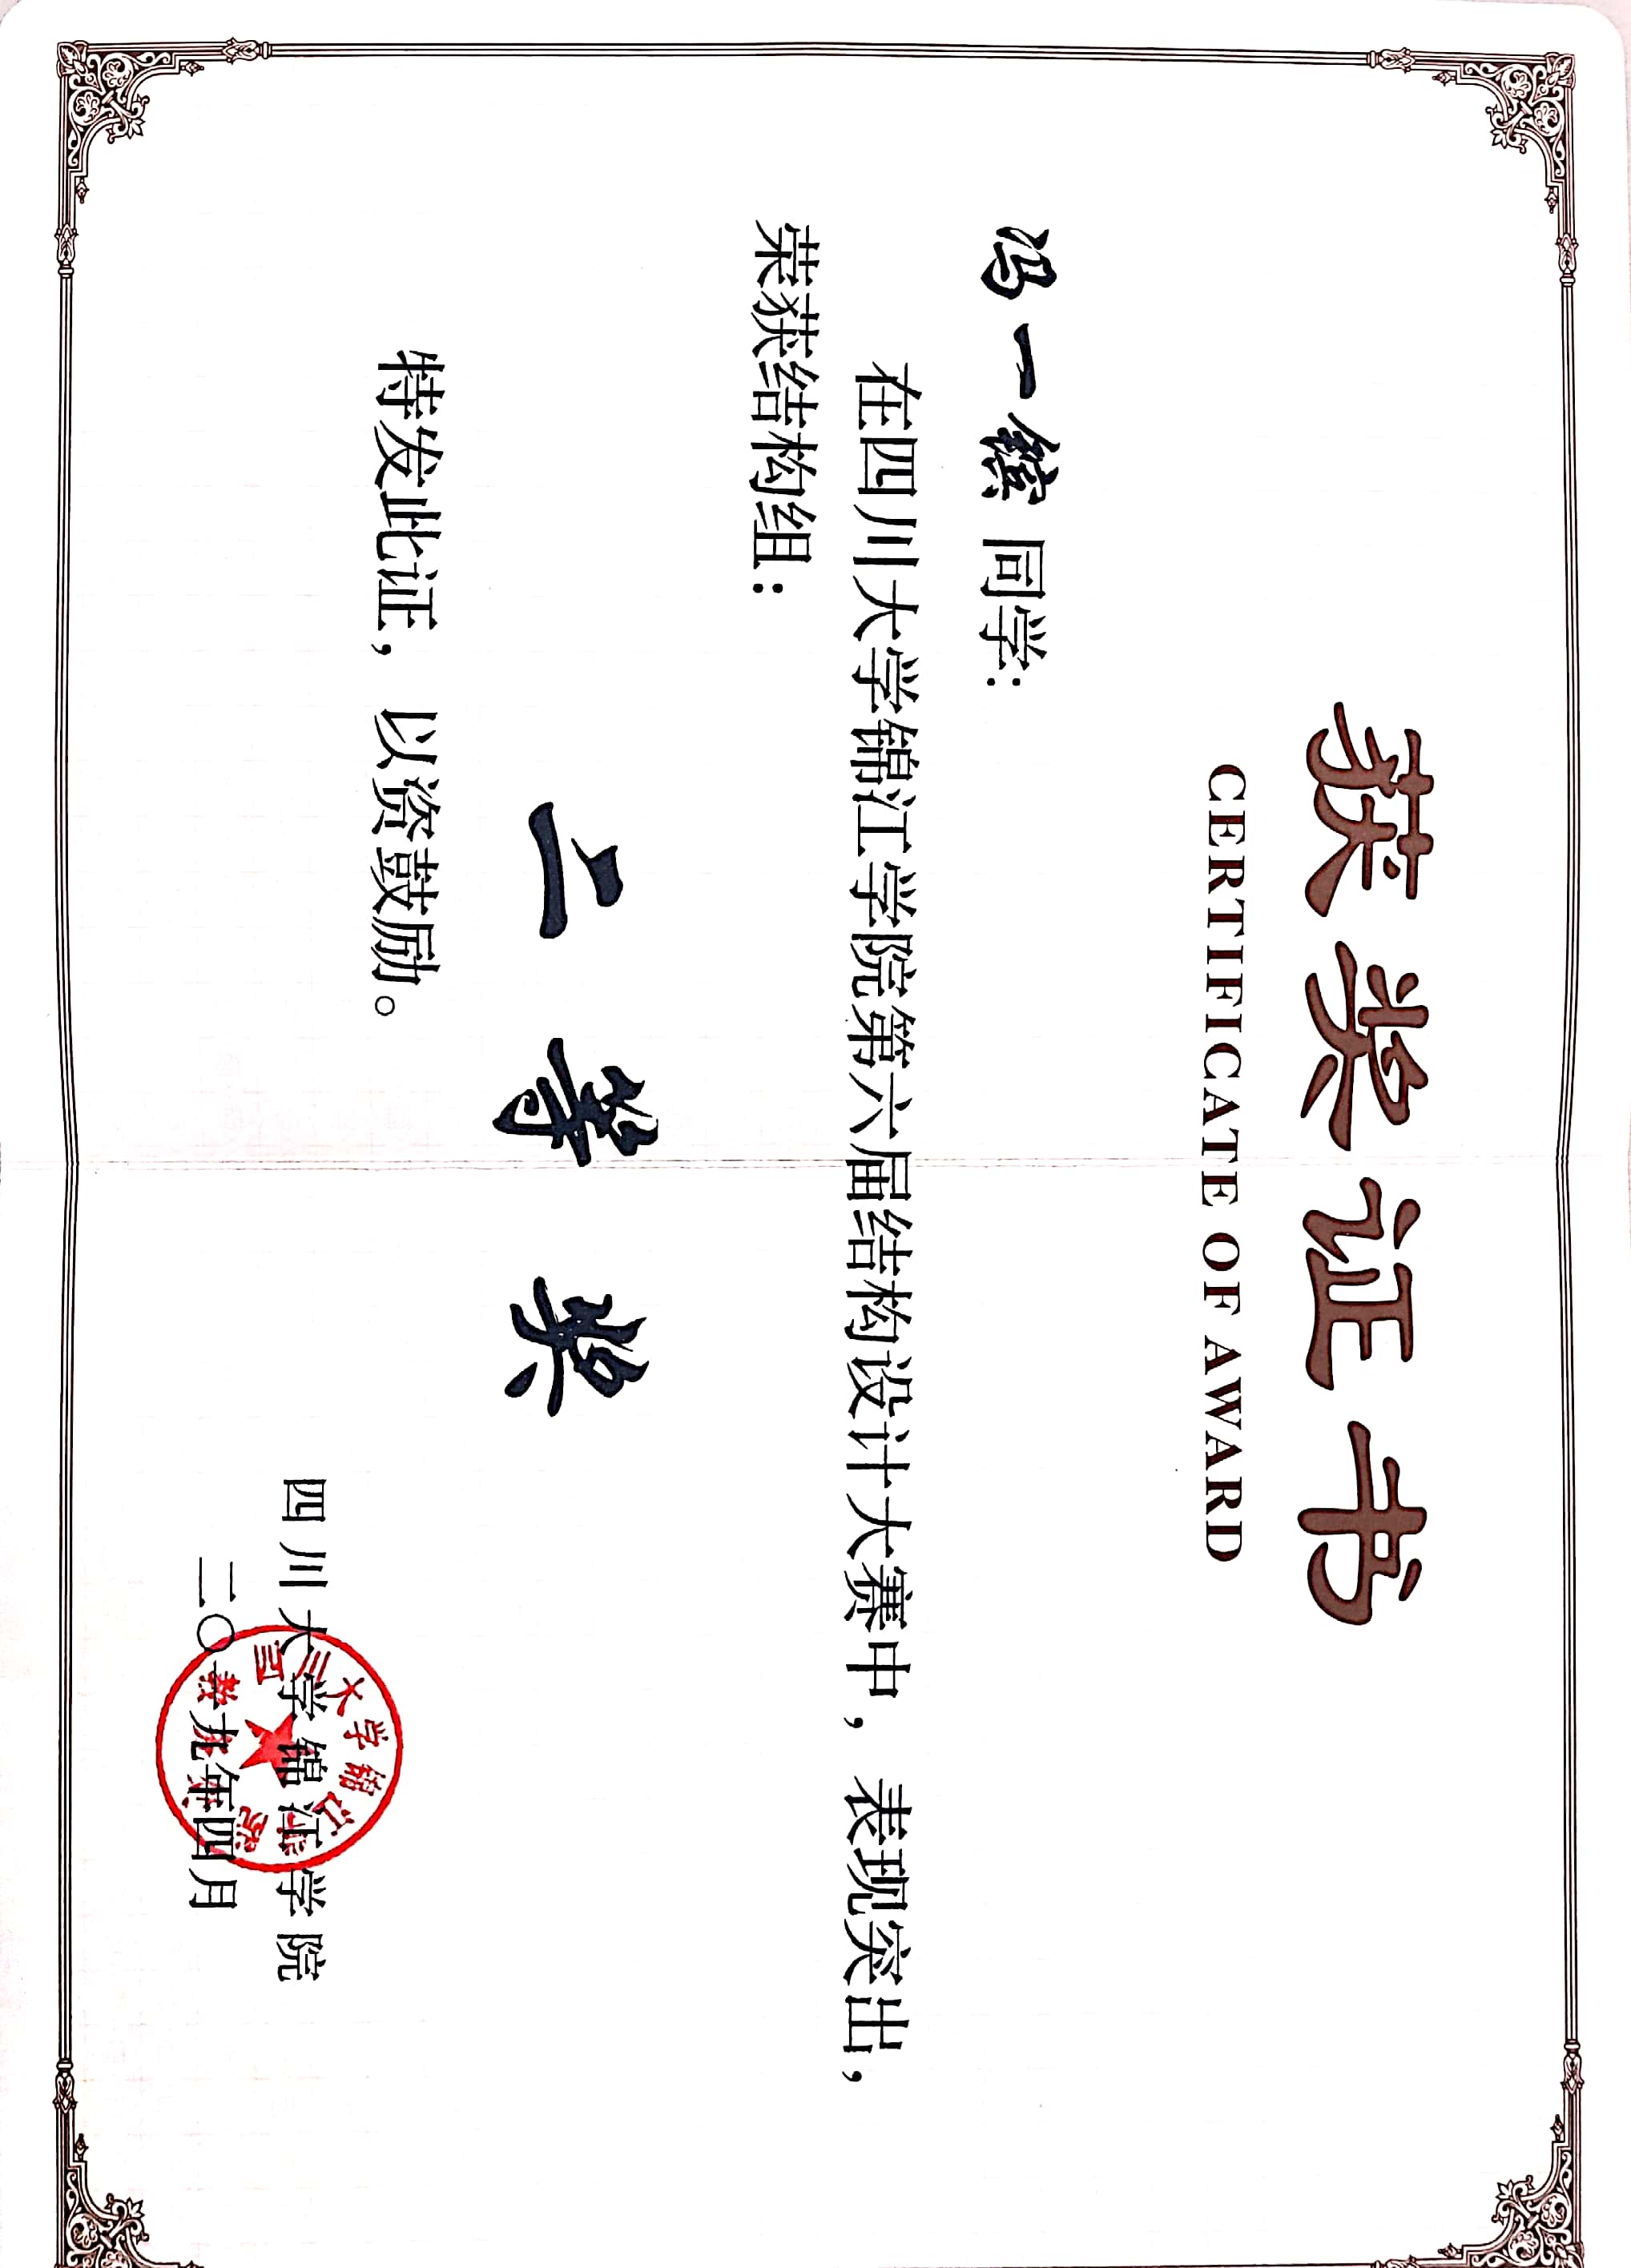 获奖证书
CERTIFICATE OF AWARD
冯一鑫 同学：
在四川大学锦江学院第六届结构设计大赛中，表现突出，
荣获结构组：
二等奖
特发此证，以资鼓励。
四川大学锦江学院
二〇一九年四月
四川大学锦江学院